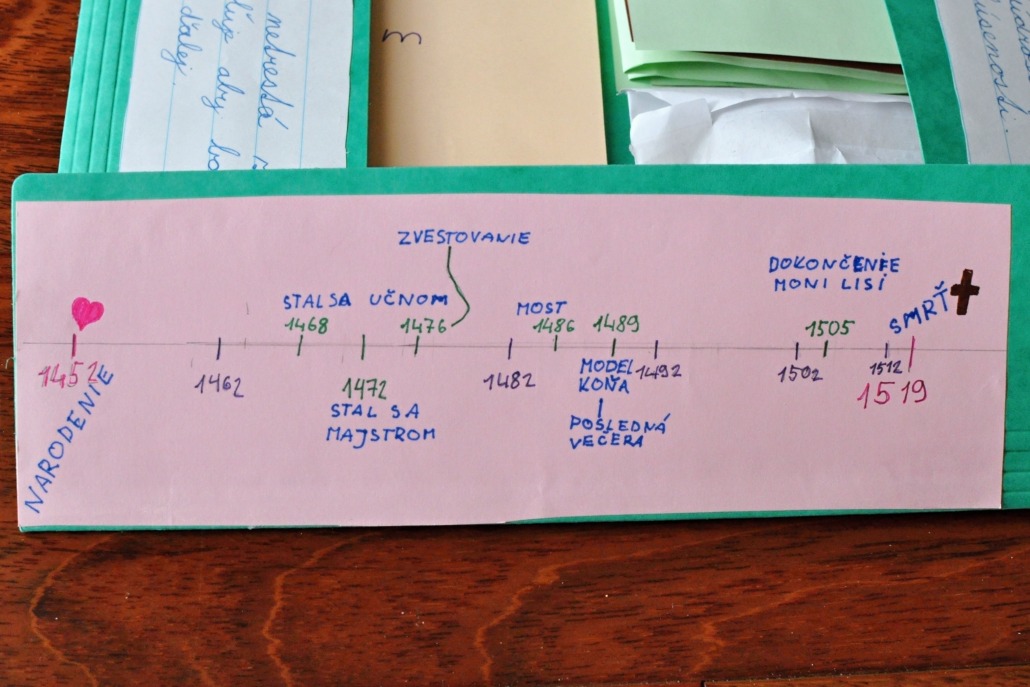 netrestá
aby
ďalej.
m
ZVESTOVANIE
DOKONČENIE
MONI LISI
STAL SA UČNOM
MOST
SMRŤ
1468
1476
1486
1489
1505
1452
1462
1472
1482
MODEL
KOŇA
1492
1502
1512
1519
NARODENIE
STAL SA
MAJSTROM
POSLEDNÁ
VEČERA